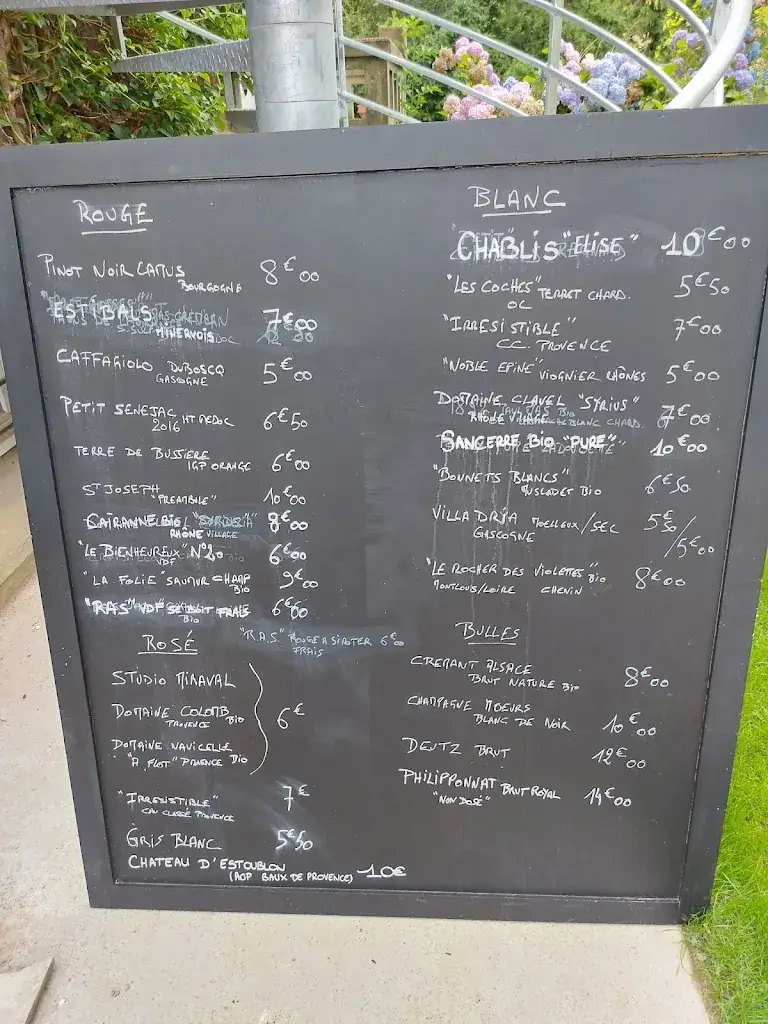 ROUGE
PINOT NOIR CAMUS 8€00
BOURGOGNE
ESTIBALS 7€00
MINERVOIS
CAFFAGIOLO DUBOSCQ 5€00
GASCOGNE
PETIT SENEJAC HT MEDOC 6€50
2016
TERRE DE BUSSIERE 6€00
IGP ORANGE
ST JOSEPH 10€00
"PREAMBILE"
CAIRANNE BIO 8€00
RHÔNE VILLAGE
"LE BIENHEUREUX" N°20 6€00
VDF
"LA FOLIE" SAUMUR CHAMP 9€00
BIO
"RAS" VDF SE BOIT FRAIS
BIO
"R.A.S" ROUGE A SIROTER 6€00
FRAIS
ROSÉ
STUDIO MIRAVAL
DOMAINE COLOMB BIO 6€
PROVENCE
DOMAINE NAVICELLE
"A FLOT" PROVENCE BIO
"IRRESISTIBLE" 7€
CRU CLASSÉ PROVENCE
GRIS BLANC 5€50
CHATEAU D'ESTOUBLON
(AOP BAUX DE PROVENCE) 10€
BLANC
CHABLIS "ELISE" 10€00
"LES COCHES" TERRET CHARD. 5€50
OC
"IRRESISTIBLE" 7€00
CC. PROVENCE
"NOBLE EPINE" VIOGNIER RHÔNES 5€00
DOMAINE CLAVEL "SYRIUS" 7€00
RHÔNE VILLAGE BIO
SANCERRE BIO "PURE" 10€00
"BONNETS BLANCS" 6€50
MUSCADET BIO
VILLA DRIA MOELLEUX/SEC 5€50/5€00
GASCOGNE
"LE ROCHER DES VIOLETTES" BIO 8€00
MONTLOUIS/LOIRE CHENIN
BULLES
CREMANT ALSACE 8€00
BRUT NATURE BIO
CHAMPAGNE MOEURS
BLANC DE NOIR 10€00
DEUTZ BRUT 12€00
PHILIPPONNAT BRUT ROYAL 14€00
"NON DOSÉ"